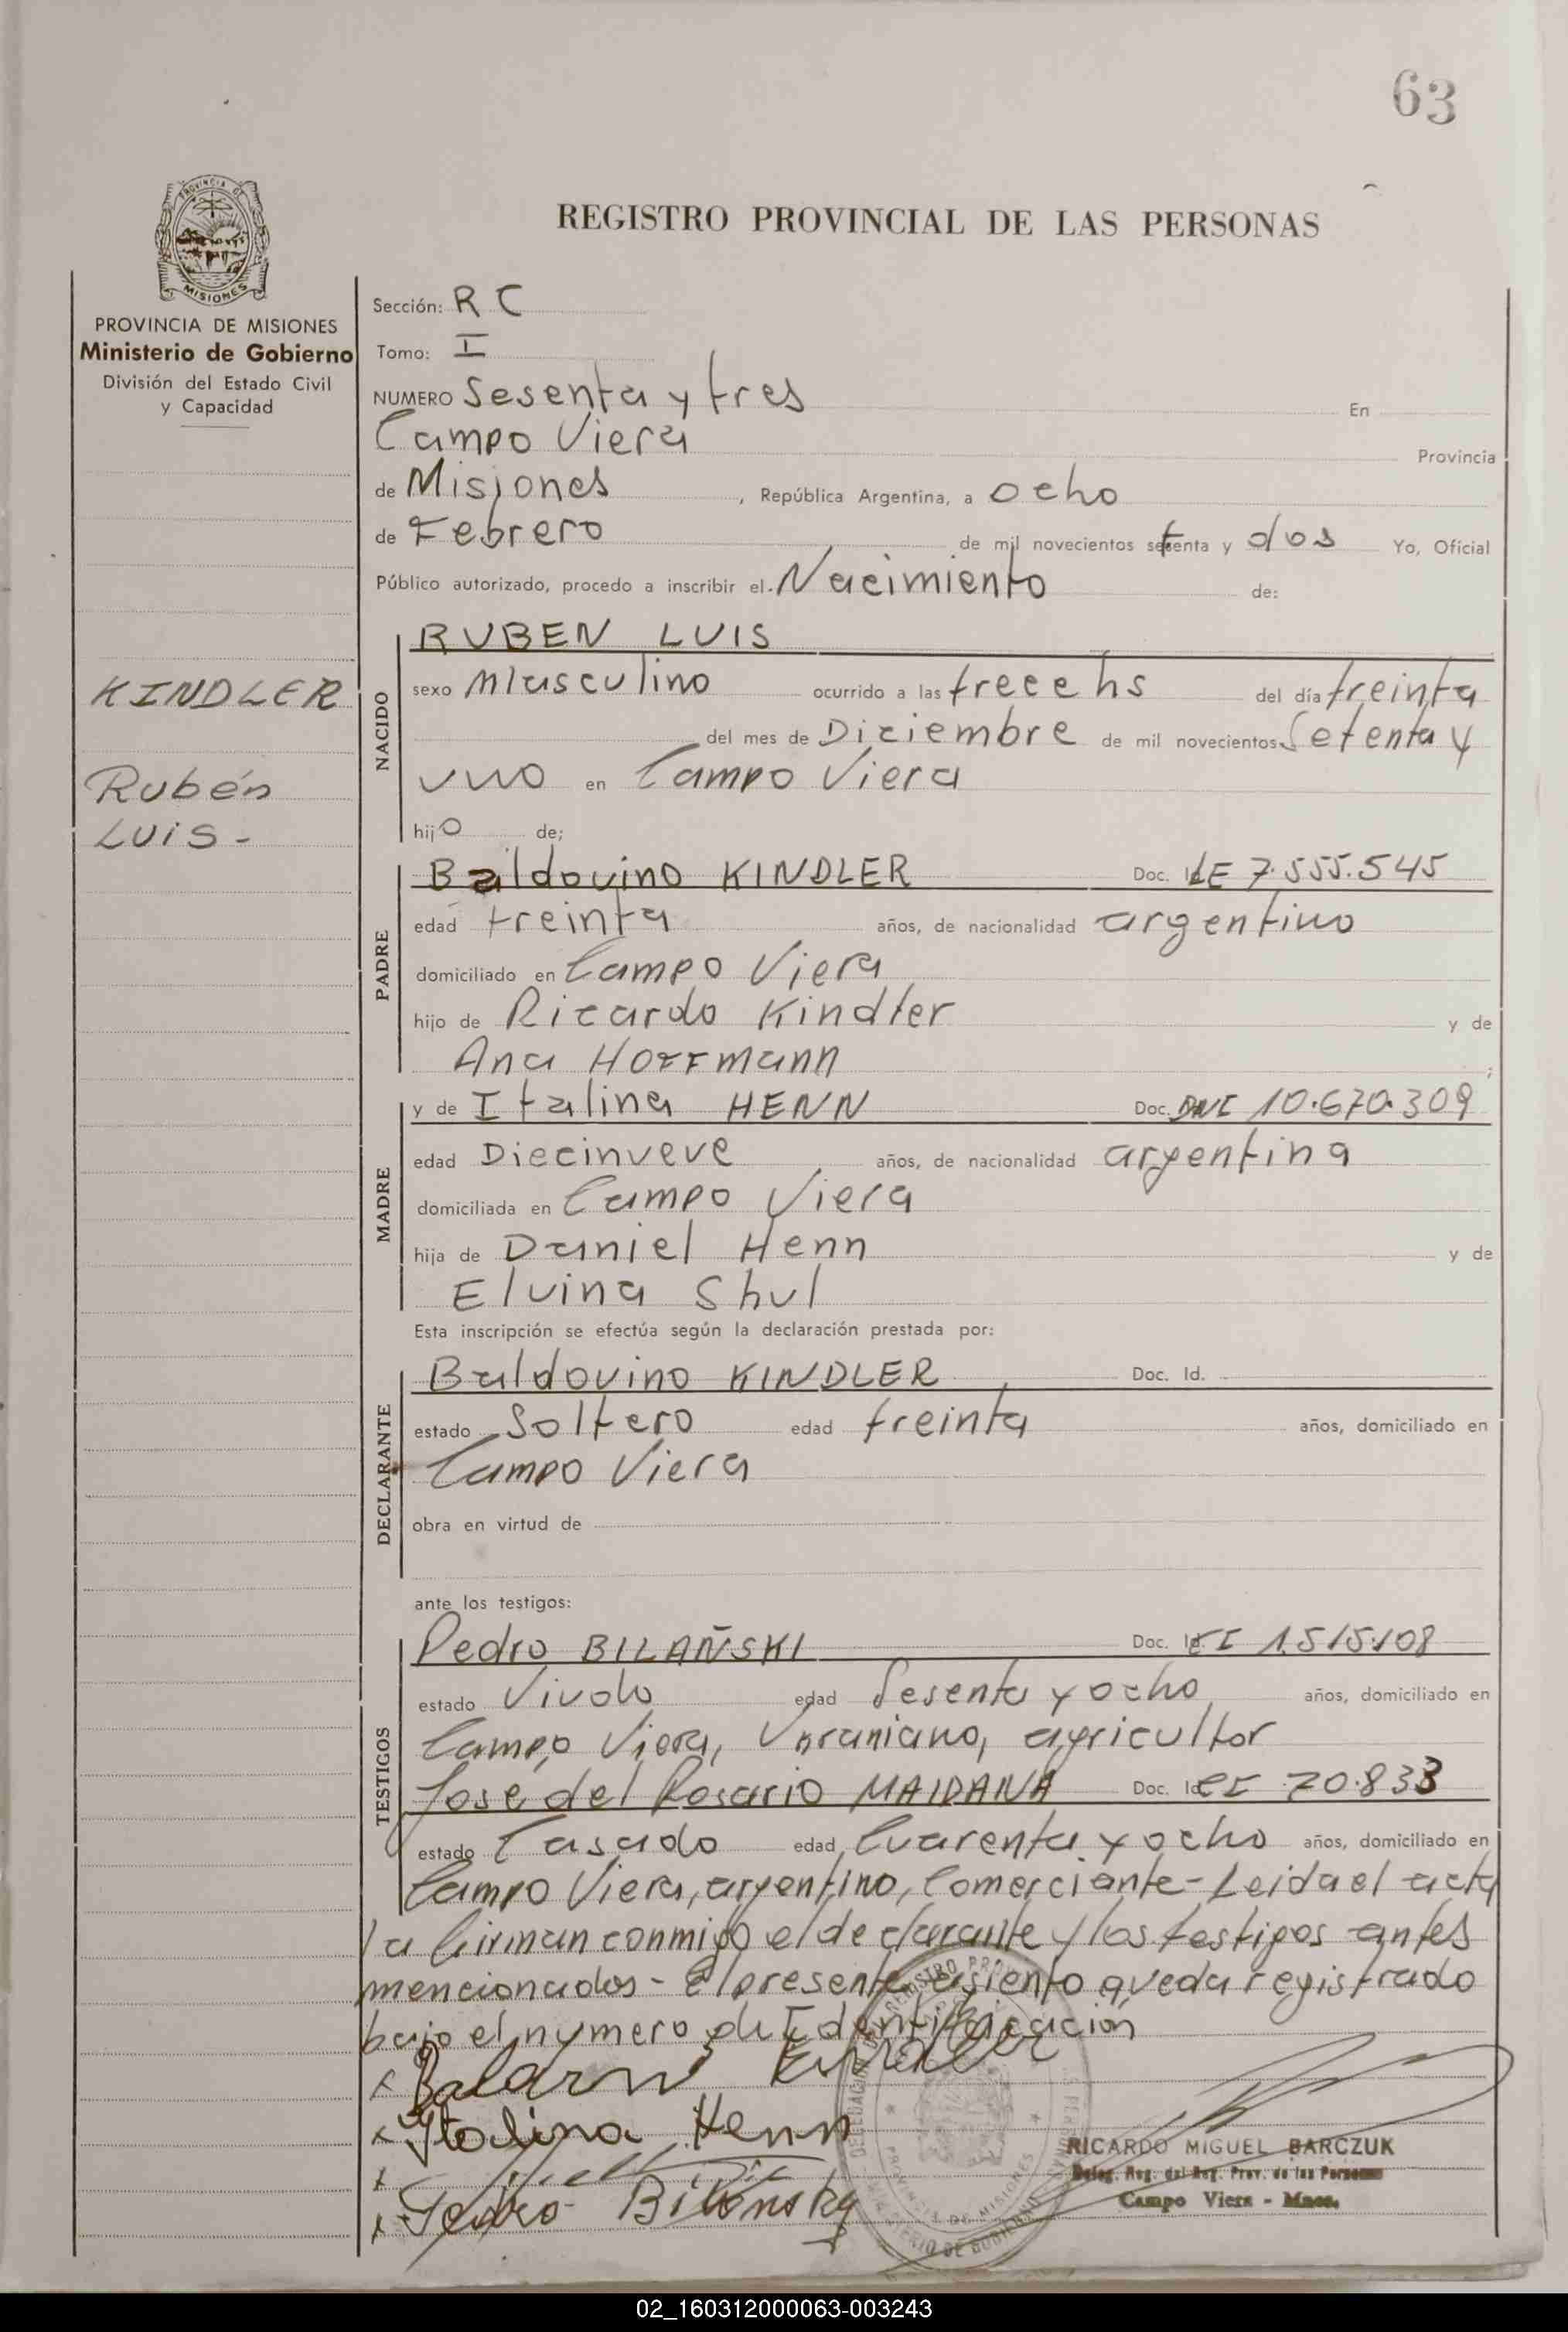 63
REGISTRO PROVINCIAL DE LAS PERSONAS
PROVINCIA DE
MISIONES
PROVINCIA DE MISIONES
Ministerio de Gobierno
División del Estado Civil
y Capacidad
KINDLER
Rubén
LUIS -
Sección: R C
Tomo: I
NUMERO Sesenta y tres En
Campo Viera Provincia
de Misiones, República Argentina, a ocho
de Febrero de mil novecientos setenta y dos Yo, Oficial
Público autorizado, procedo a inscribir el Nacimiento de:
NACIDO
RUBEN LUIS
sexo Masculino ocurrido a las trece hs del día treinta
del mes de Diciembre de mil novecientos Setenta y
uno en Campo Viera
hijo de;
PADRE
Baldovino KINDLER Doc. Id. LE 7.555.545
edad treinta años, de nacionalidad argentino
domiciliado en Campo Viera
hijo de Ricardo Kindler y de
Ana HOFFmann ;
MADRE
y de Italina HENN Doc. DNI 10.670.309
edad Diecinueve años, de nacionalidad argentina
domiciliada en Campo Viera
hija de Daniel Henn y de
Elvina Shul
Esta inscripción se efectúa según la declaración prestada por:
DECLARANTE
Baldovino KINDLER Doc. Id.
estado Soltero edad treinta años, domiciliado en
Campo Viera
obra en virtud de
ante los testigos:
TESTIGOS
Pedro BILAÑSKI Doc. Id. CI 1.515.108
estado Viudo edad Sesenta y ocho años, domiciliado en
Campo Viera, Ucraniano, agricultor
José del Rosario MAIDANA Doc. Id. CI 70.833
estado Casado edad Cuarenta y ocho años, domiciliado en
Campo Viera, argentino, Comerciante - Leida el acta
la firman conmigo el declarante y los testigos antes
mencionados - El presente asiento queda registrado
bajo el numero de Identificación
x Kindler
x Italina Henn
x
x Pedro Bilonsky
RICARDO MIGUEL BARCZUK
Deleg. Reg. del Reg. Prov. de las Personas
Campo Viera - Mnes.
PROVINCIA DE MISIONES
MINISTERIO DE GOBIERNO
02_160312000063-003243